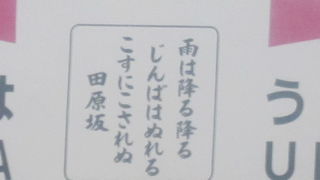 雨は降る降る
じんばはぬれる
こすにこされぬ
田原坂
う
U
は
A